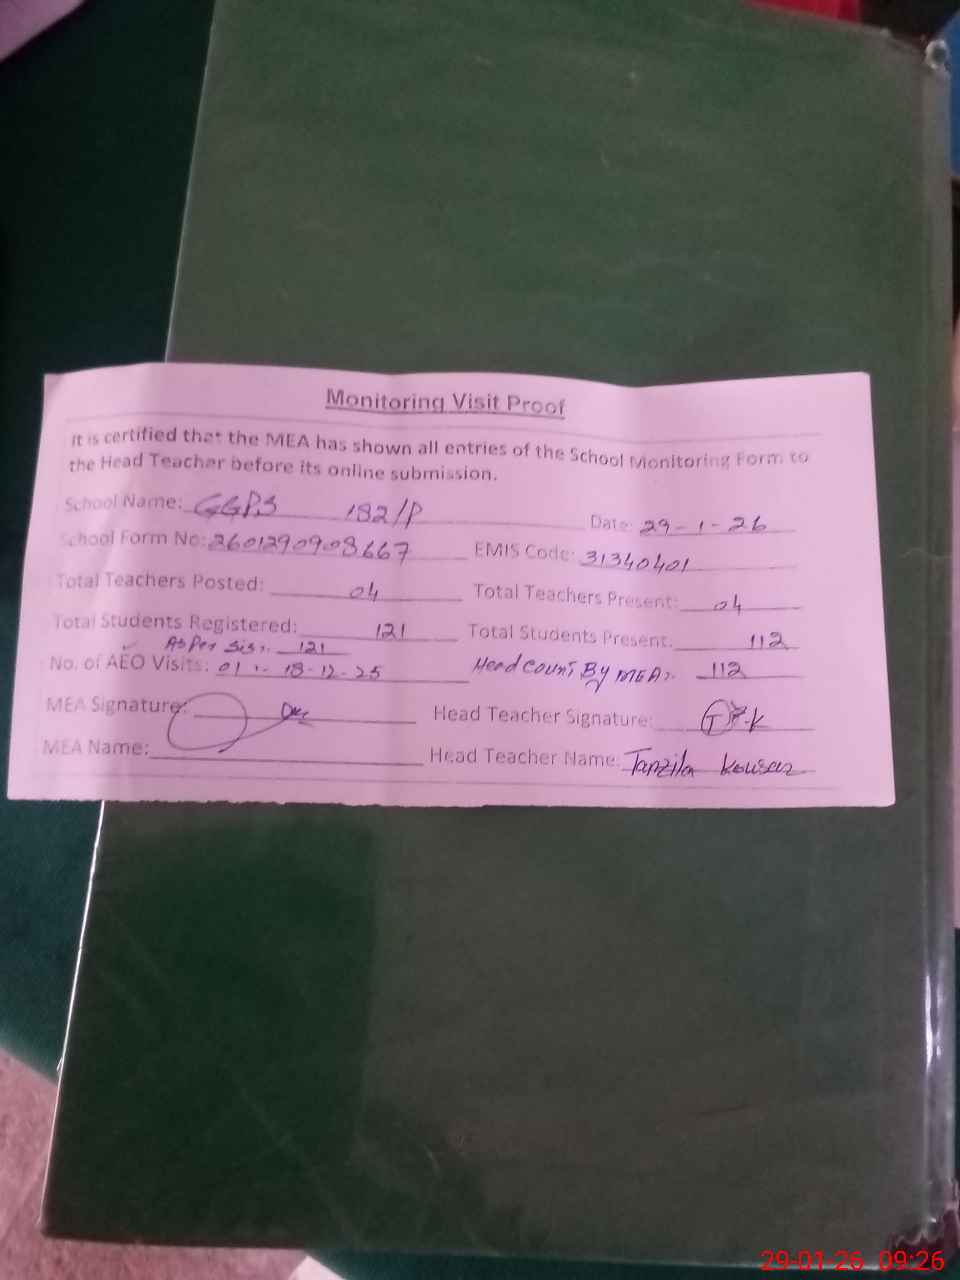 Monitoring Visit Proof
It is certified that the MEA has shown all entries of the School Monitoring Form to
the Head Teacher before its online submission.
School Name: GGPS 182/P Date: 29-1-26
School Form No: 2601290908667 EMIS Code: 31340401
Total Teachers Posted: 04 Total Teachers Present: 04
Total Students Registered: 121 Total Students Present: 112
As Per Sis:. 121
No. of AEO Visits: 01 :. 18-12-25 Head Count By MEA:. 112
MEA Signature: Head Teacher Signature:
MEA Name: Head Teacher Name: Tanzila Kousar
29-01-26 09:26